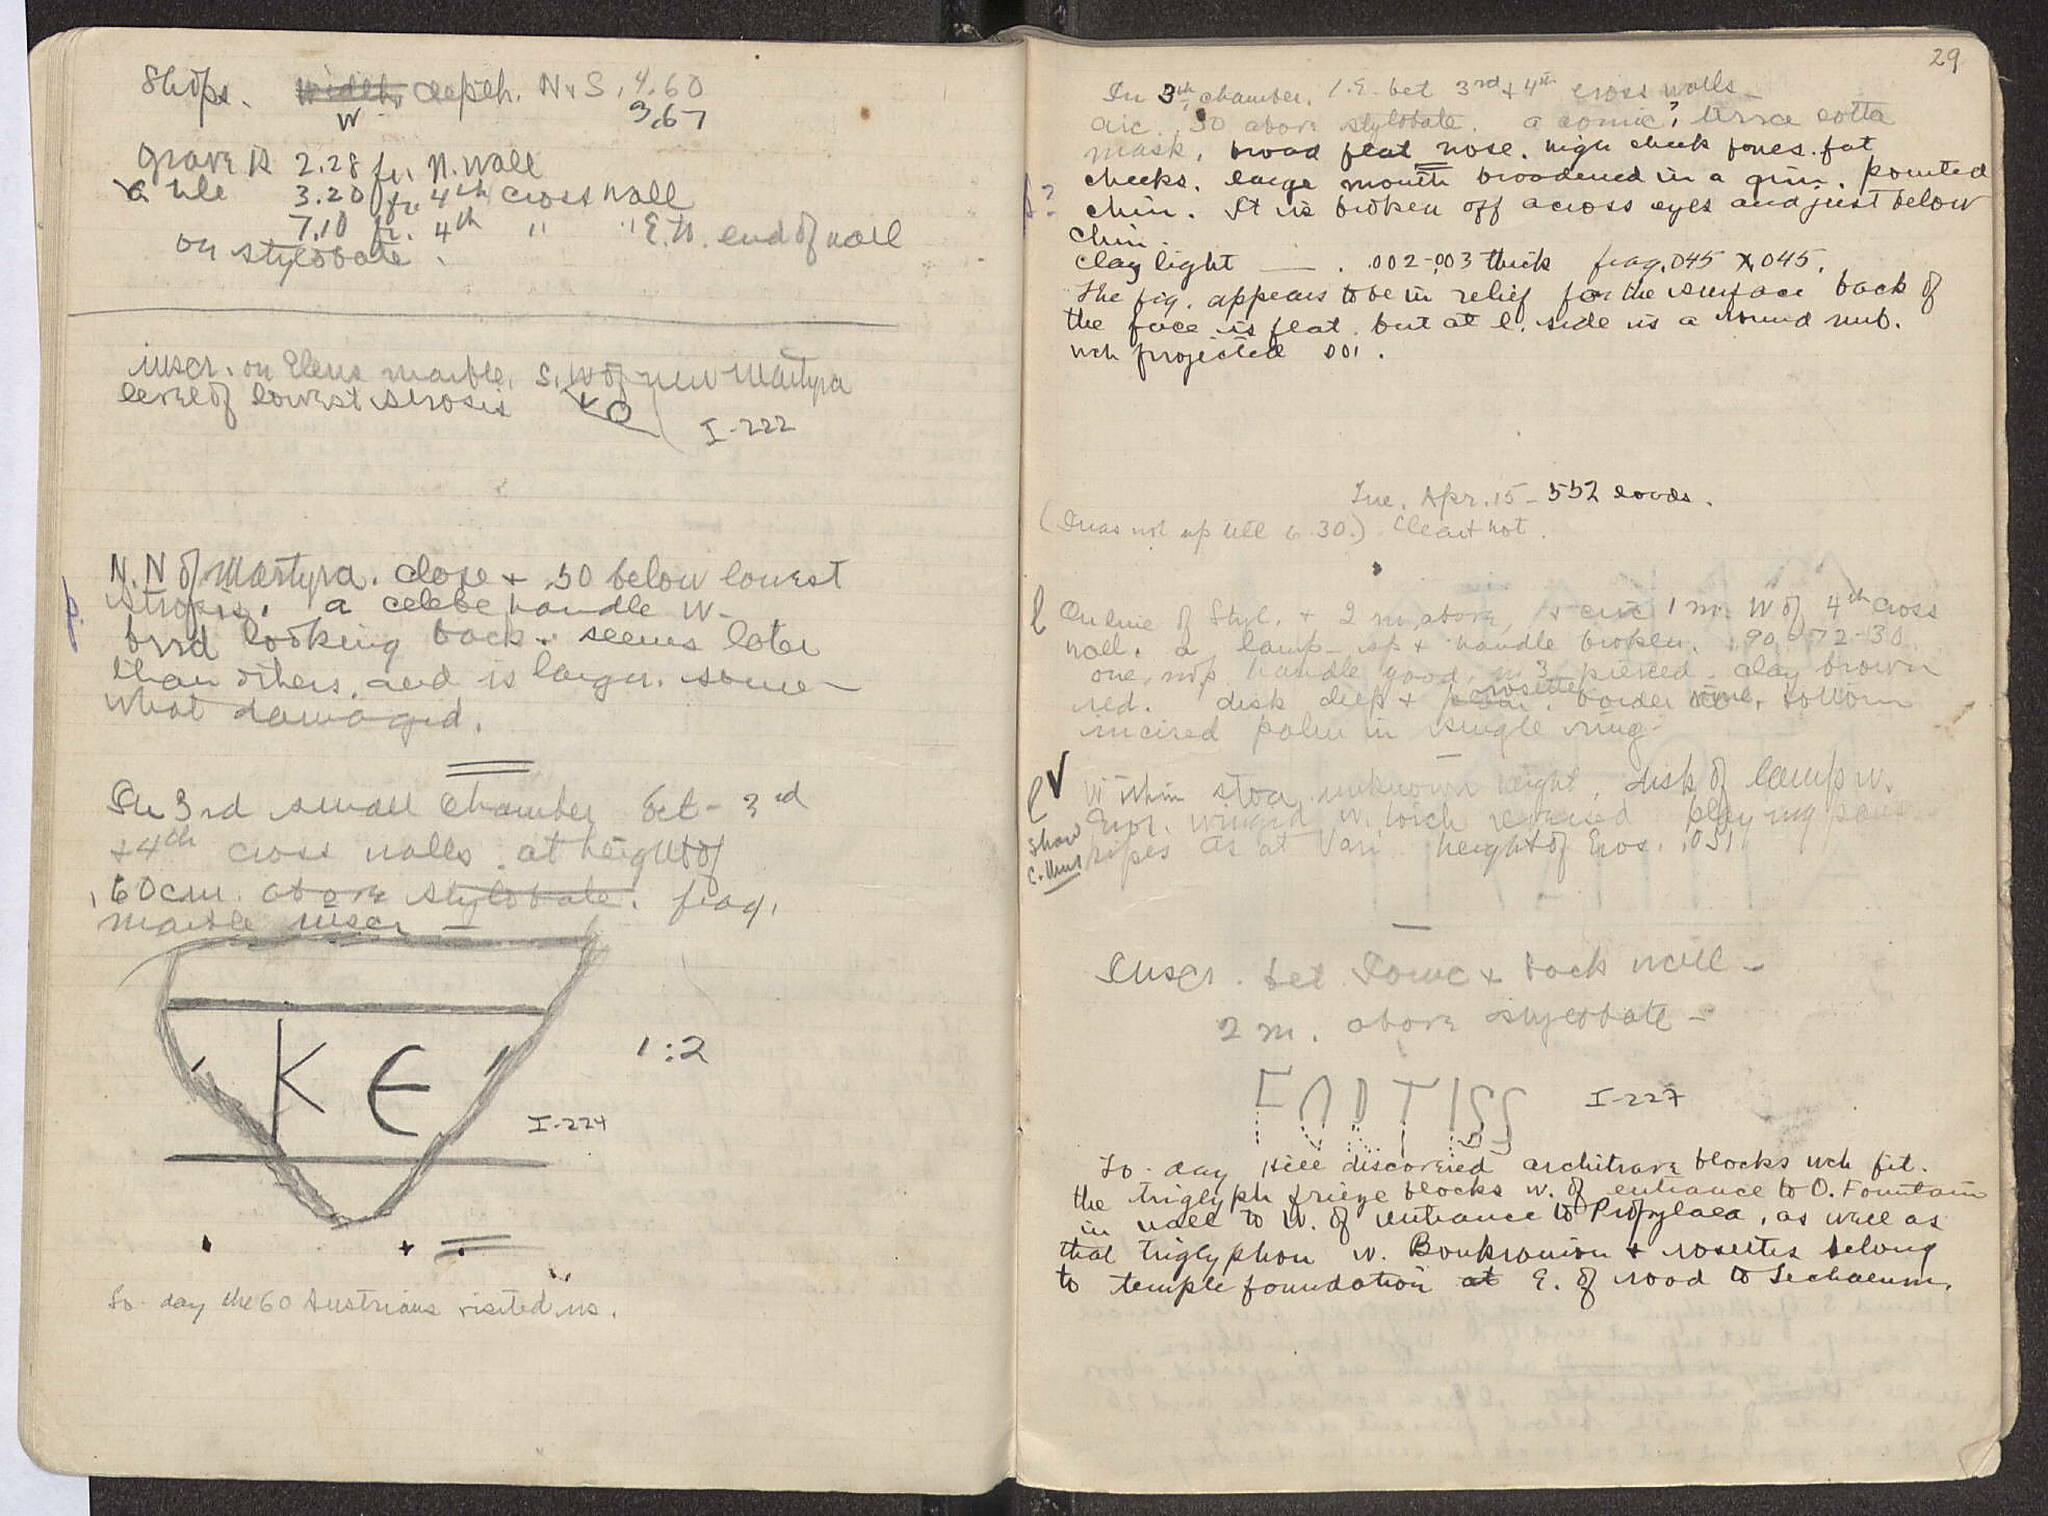 Shops. Width, depth. N+S, 4.60
W 3.67
grave is 2.28 fr. N. wall
a tile 3.20 fr. 4th cross wall
7.10 fr. 4th " " E.W. end of wall
on stylobate.
inscr. on Eleus marble, S.W of new Martyra
level of lowest strosis
I-222
N.N of Martyra. close + .50 below lowest
strosis, a celebe handle w.
bird looking back. seems later
than others, and is larger. some-
what damaged.
p.
In 3rd small chamber bet- 3rd
+ 4th cross walls. at height of
.60 cm. above stylobate. frag.
marble inscr -
K Є
1:2
I-224
To-day the 60 Austrians visited us.
29
In 3th chamber, I.E. bet 3rd + 4th cross walls -
circ. .30 above stylobate. a comic? terra cotta
mask, broad flat nose. high cheek bones. fat
cheeks. large mouth broadened in a grin. pointed
chin. It is broken off across eyes and just below
chin.
clay light — . .002-.003 thick frag. .045 x .045.
The fig. appears to be in relief for the surface back of
the face is flat. but at l. side is a round nub.
wch projected .001.
Tue. Apr. 15 - 552 loads.
(I was not up till 6.30.) Clear + hot.
l On line of Styl. + 2 m. above, + circ 1 m. W of 4th cross
wall. a lamp - top + handle broken. .90-72-30
one, nip handle good, in 3 pierced. clay brown
red. disk deep + rosette, border vine, bottom
incised palm in single ring.
l ✓ Within stoa, unknown height, disk of lamp w.
Eros. winged w. torch reversed playing pan
pipes as at Vari. height of Eros. .031
show
C. Mus
Inscr. bet Ionic + back wall -
2 m. above stylobate -
I-227
To-day Hill discovered architrave blocks wch fit.
the triglyph frieze blocks w. of entrance to O. Fountain
in wall to W. of entrance to Propylaea, as well as
that triglyphon w. Boukranion + rosettes belong
to temple foundation at E. of road to Lechaeum.